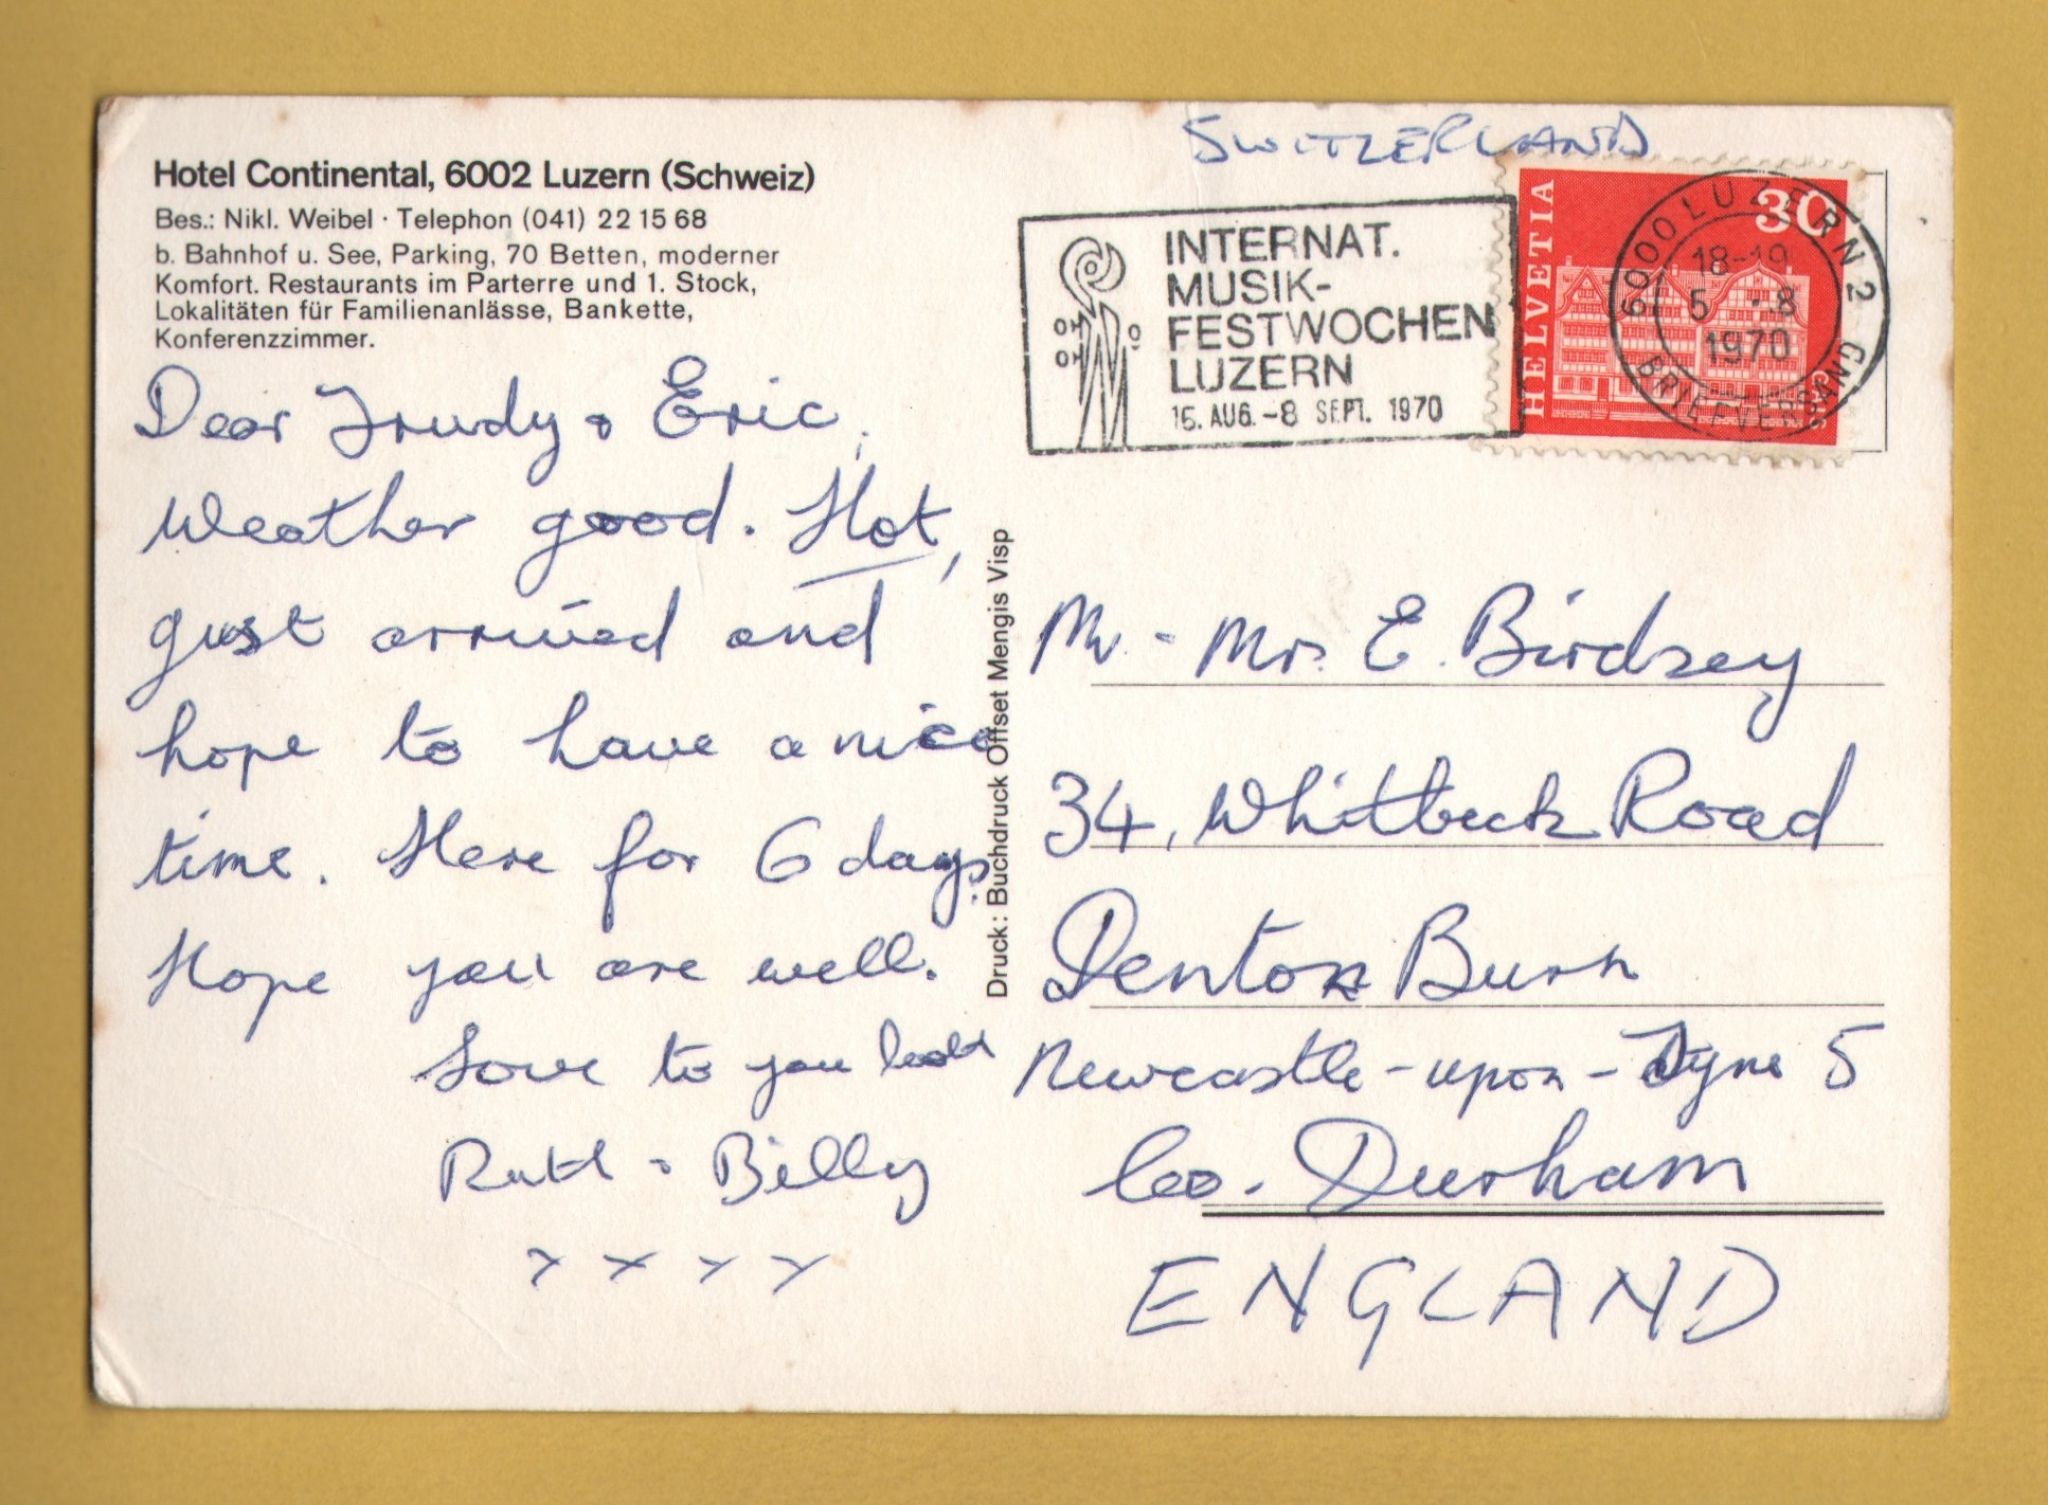 Hotel Continental, 6002 Luzern (Schweiz)
Bes.: Nikl. Weibel · Telephon (041) 22 15 68
b. Bahnhof u. See, Parking, 70 Betten, moderner
Komfort. Restaurants im Parterre und 1. Stock,
Lokalitäten für Familienanlässe, Bankette,
Konferenzzimmer.
Dear Trudy & Eric,
Weather good. Hot,
just arrived and
hope to have a nice
time. Here for 6 days.
Hope you are well.
Love to you both
Ruth & Billy
x x x x
Druck: Buchdruck Offset Mengis Visp
SWITZERLAND
INTERNAT.
MUSIK-
FESTWOCHEN
LUZERN
15. AUG. - 8 SEPT. 1970
HELVETIA
30
6000 LUZERN 2
18-19
5 .-8
1970
BRIEFVERSAND
Mr. - Mrs. E. Birdsey
34, Whitbeck Road
Denton Burn
Newcastle-upon-Tyne 5
Co. Durham
ENGLAND